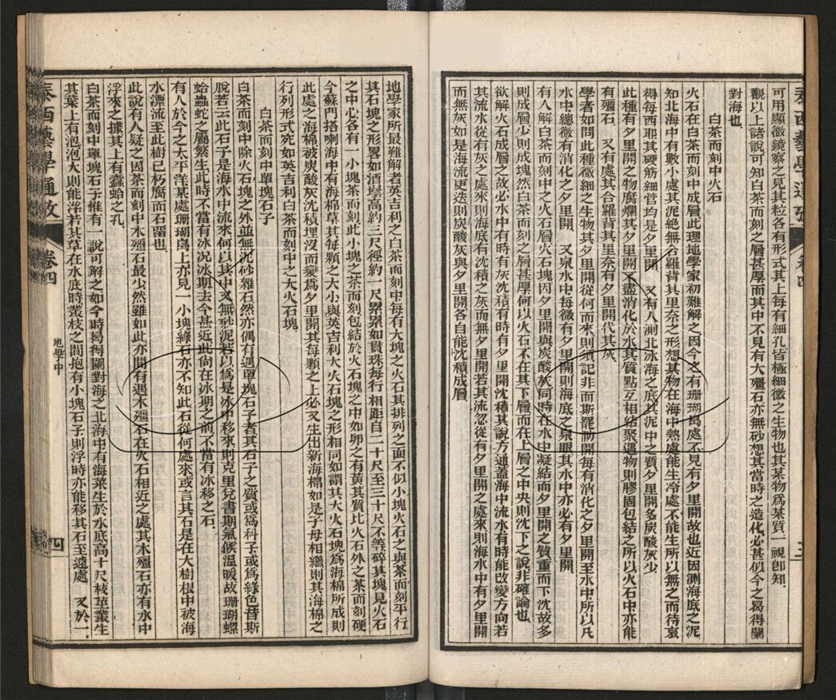 泰西藝學通攷 卷四 三
可用顯微鏡察之見其粒各有形式其上每有細孔皆極細微之生物也其某物爲某質一視卽知
觀以上諸說可知白茶而刻之層甚厚而其中不見有大殭石亦無砂想其當時之造化必甚似今之曷得闌
對海也
白茶而刻中火石
火石在白茶而刻中成層此理地學家初難解之因今之有珊瑚島處不見有夕里開故也近因測海底之泥
知北海中有數小處其泥絶無合羅背其里奈之形想其物在海中熱處能生冷處不能生所以無之而待哀
得每西耶其硬筋細管均是夕里開 又有人測北冰海之底其泥中之質夕里開多炭酸灰少
此種有夕里開之物腐爛其夕里開不盡消化於水其質點互相結聚遇物則膠固包結之所以火石中亦能
有殭石 又有處其合羅背其里奈有夕里開代其灰
學者如問此種微細之生物其夕里開從何而來則須記非而斯罷勒開每有消化之夕里開至水中所以凡
水中總微有消化之夕里開 又泉水中每微有夕里開則海底之泉眼其水中亦必有夕里開
有人解白茶而刻中之火石層火石塊因夕里開與炭酸灰同時在水中凝結而夕里開之質重而下沈故多
則成層少則成塊然白茶而刻之層甚厚何以火石不在其下層而在上層之中央則沈下之說非確論也
欲解火石成層之故必水中有時有灰沈積有時有夕里開沈積其說方通蓋海中流水有時能改變方向若
其流水從有灰之處來則海底有沈積之灰而無夕里開若其流忽從有夕里開之處來則海水中有夕里開
而無灰如是海流更迭則炭酸灰與夕里開各自能沈積成層
地學家所最難解者英吉利之白茶而刻中每有大塊之火石其排列之面不似小塊火石之與茶而刻平行
其石塊之形畧如酒甖高約三尺徑約一尺纍纍如貫珠每行相距自二十尺至三十尺不等碎其塊見火石
之中心各有一小塊茶而刻此小塊之茶而刻包結於火石塊之中如卵之有黃其質比火石外之茶而刻硬
今蘇門搭喇海中有海棉草其每顆之大小與英吉利大火石塊之形相同如謂其大火石塊爲海棉所成則
此處之海棉被炭酸灰沈積埋沒而變爲夕里開其每顆之上必又生出新海棉如是子母相繼則其海棉之
行列形式宛如英吉利白茶而刻中之大火石塊
白茶而刻中單塊石子
白茶而刻中除火石塊之外並無泥砂雜石然亦偶有遇單塊石子者其石子之質或爲科子或爲綠色昔斯
脫若云此石子是海水中流來何以其中又無砂泥若以爲是冰中移來則克里兌書期氣候溫暖故珊瑚蝶
蛤蟲蛇之屬繁生此時不當有冰況冰期去今甚近此尚在冰期之前不當有冰移之石
有人於今之太平洋某處珊瑚島上亦見一小塊綠石亦不知此石從何處來或言其石是在大樹根中被海
水漂流至此樹已朽腐而石畱也
此說有人疑之因茶而刻中木殭石最少然雖如此亦間有遇木殭石在火石相近之處其木殭石亦有水中
浮來之據其上有蠹蛤之孔
白茶而刻中單塊石子惟有一說可解之如今時曷得闌對海之北海中有海菜生於水底高十尺枝莖叢生
其葉上有泡泡大則能浮若其草在水底時叢枝之間抱有小塊石子則浮時亦能移其石至遠處 又於一
泰西藝學通攷 卷四 地學中 四